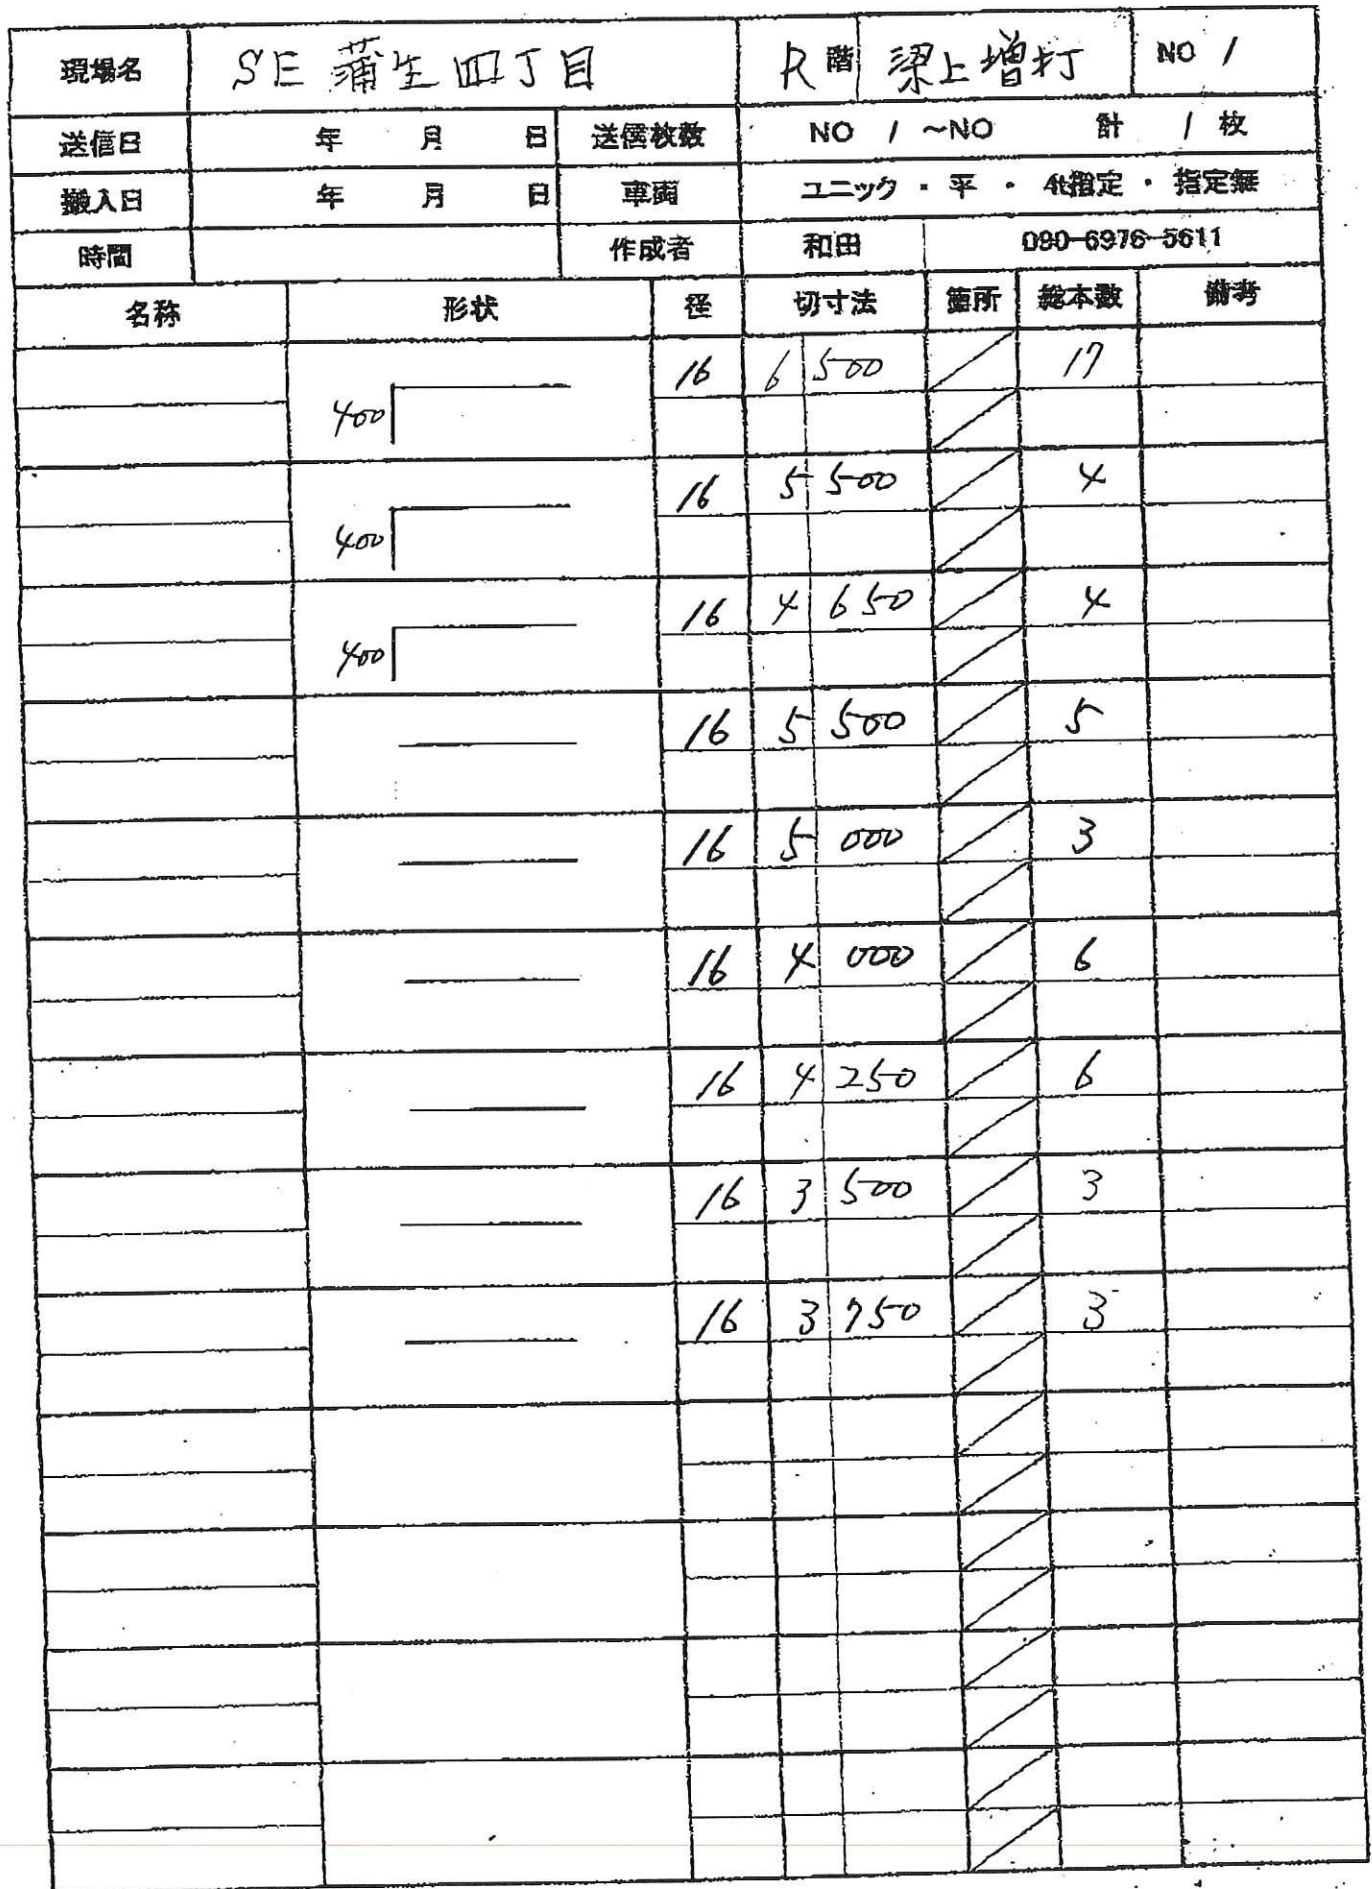 現場名 SE 蒲生四丁目 R 階 梁上増打 NO 1
送信日 年 月 日 送信枚数 NO 1 ～NO 計 1 枚
搬入日 年 月 日 車両 ユニック ・ 平 ・ 4t指定 ・ 指定無
時間 作成者 和田 090-6976-5611
名称 形状 径 切寸法 箇所 総本数 備考
400 16 6 500 17
400 16 5 500 4
400 16 4 650 4
16 5 500 5
16 5 000 3
16 4 000 6
16 4 250 6
16 3 500 3
16 3 750 3